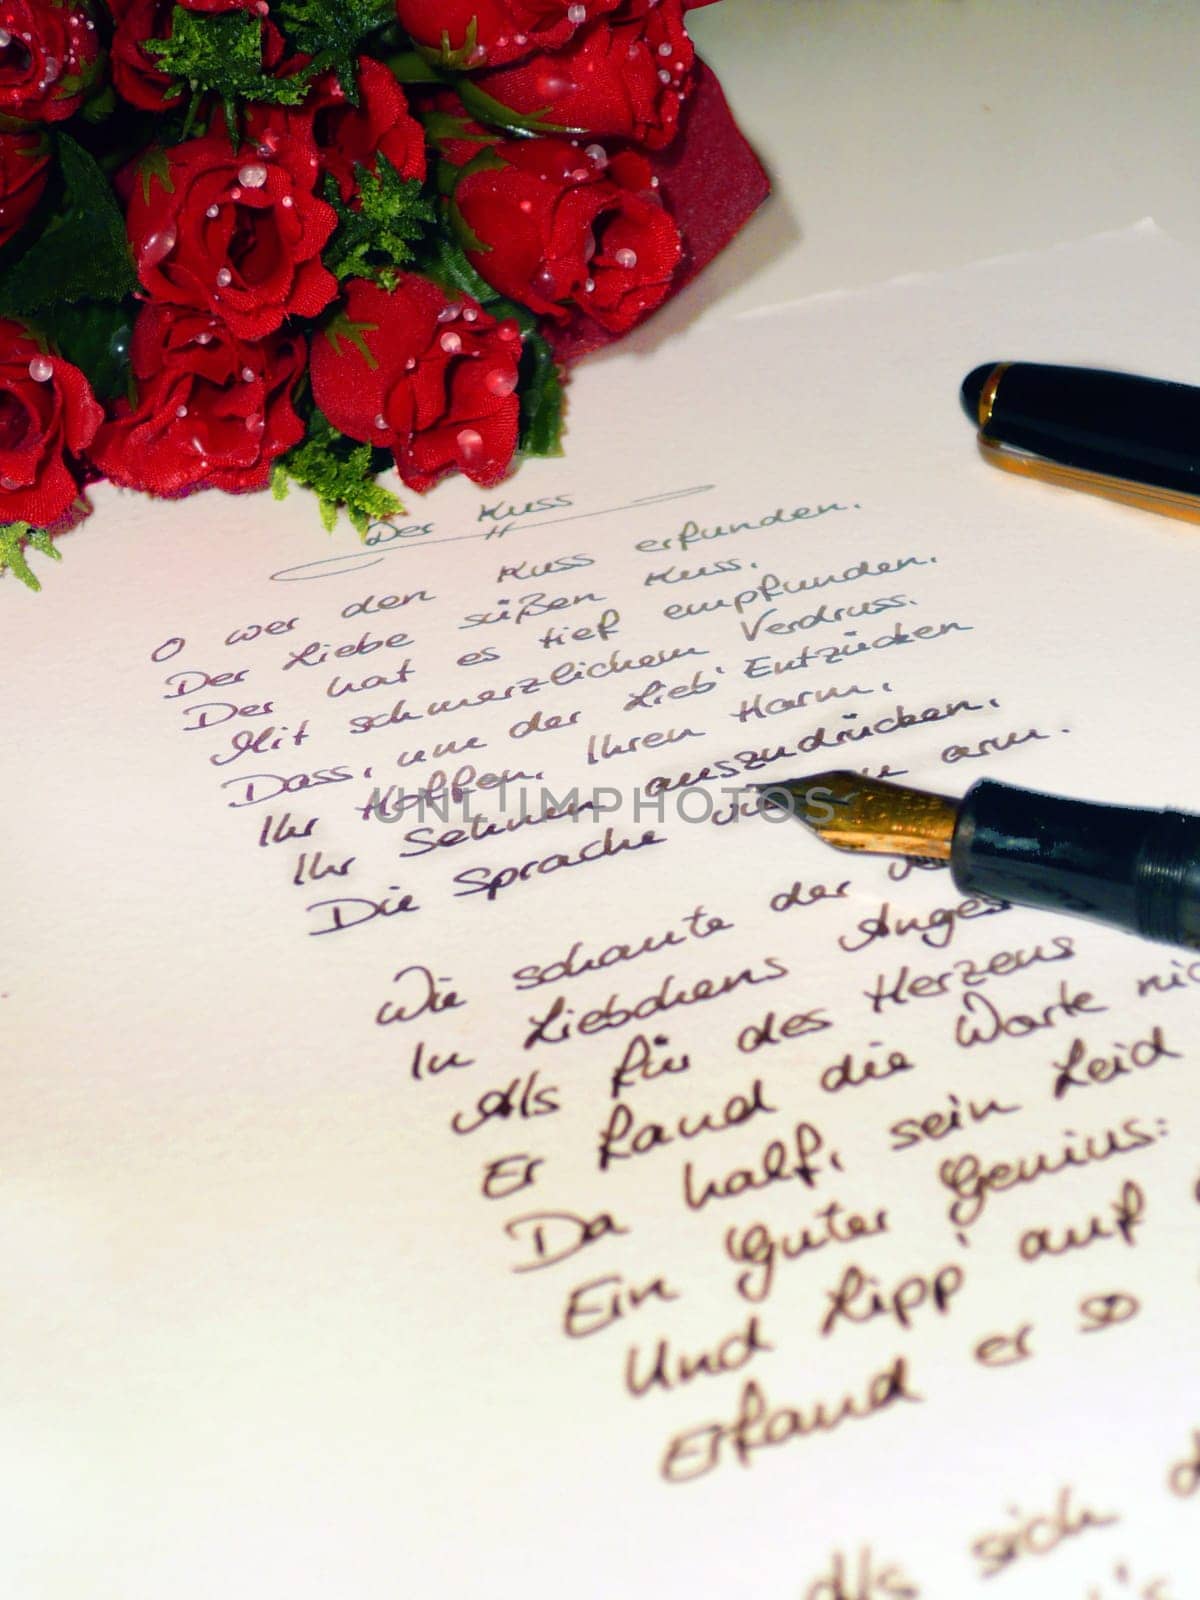 Der Kuss
O wer den Kuss erfunden.
Der Liebe süßen Kuss.
Der hat es tief empfunden.
Mit schmerzlichem Verdruss.
Dass, um der Lieb' Entzücken
Ihr Hoffen, Ihren Harm,
Ihr Sehnen auszudrücken,
Die Sprache viel arm.
UNLIMPHOTOS
Wie schaute der
In Liebchens
Als für des Herzens
Er fand die Worte
Da half, sein Leid
Ein guter Genius:
Und Lipp' auf
Erfand er so
Als sich